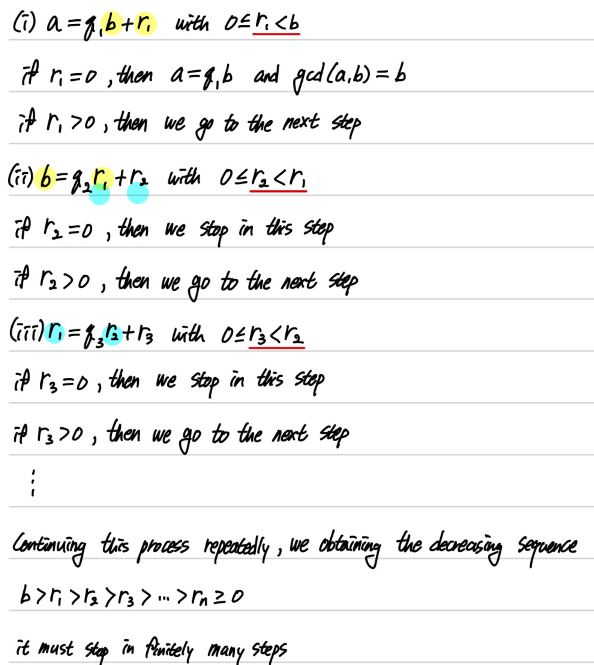 (i) a = q₁b + r₁ with 0 ≤ r₁ < b
if r₁ = 0 , then a = q₁b and gcd(a,b) = b
if r₁ > 0 , then we go to the next step
(ii) b = q₂r₁ + r₂ with 0 ≤ r₂ < r₁
if r₂ = 0 , then we stop in this step
if r₂ > 0 , then we go to the next step
(iii) r₁ = q₃r₂ + r₃ with 0 ≤ r₃ < r₂
if r₃ = 0 , then we stop in this step
if r₃ > 0 , then we go to the next step
⋮
Continuing this process repeatedly , we obtaining the decreasing sequence
b > r₁ > r₂ > r₃ > ... > rₙ ≥ 0
it must stop in finitely many steps